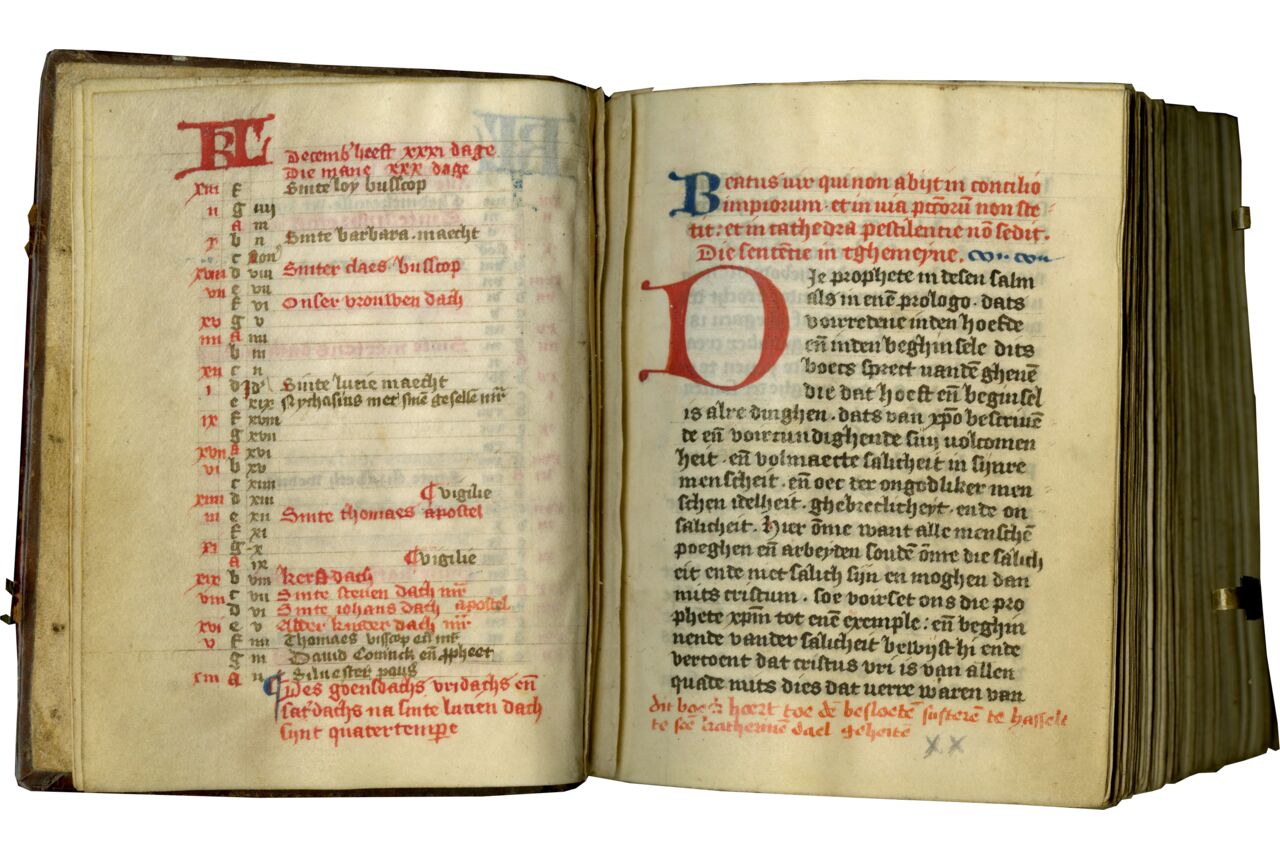 KL
Decemb' heeft xxxi dage
Die mane xxx dage
xiii f Sinte loy busscop
ii g iiii
A iii
x b ii Sinte barbara. maecht
c Non
xviii d viii Sinter claes busscop
vii e vii
f vi Onser vrouwen dach
xv g v
iiii A iiii
b iii
xii c ii
i d Id' Sinte lucie maecht
e xix Nychasius met sinē geselle mr̄
ix f xviii
g xvii
xvii A xvi
vi b xv
c xiiii
xiiii d xiii ¶ vigilie
iii e xii Sinte thomaes apostel
f xi
xi g x
A ix ¶ vigilie
xix b viii kersdach
viii c vii Sinte steuen dach mr̄
d vi Sinte iohans dach apostel
xvi e v Alder kinder dach mr̄
v f iiii Thomaes busscop eñ mr̄
g iii Dauid Coninck eñ ꝓpheet
xiii A ii Siluester paus
¶ Des goensdachs vridachs eñ
saterdachs na sinte lucien dach
sijnt quatertemꝑe
Beatus uir qui non abijt in concilio
impiorum. et in uia pctōrū non ste
tit: et in cathedra pestilentie nō sedit.
Die sentētie in tghemeyne.
DIe prophete in desen salm
als in enē prologo. dats
voirredene inden hoefde
eñ inden beghinsele dits
boecs sprect vandē ghenē
die dat hoeft eñ beginsel
is alre dinghen. dats van xpō bescriuē
de eñ voircundighende sijn uolcomen
heit. eñ volmaecte salicheit in sijnre
menscheit. eñ oec ter ongodliker men
schen idelheit. ghebreclicheyt. ende on
salicheit. Hier ōme want alle menschē
poeghen eñ arbeyden soudē ōme die salich
eit ende niet salich sijn en moghen dan
mits cristum. soe voirset ons die pro
phete xpm̄ tot enē exemple: eñ beghin
nende vander salicheit bewijst hi ende
vertoent dat cristus vri is van allen
quade mits dies dat uerre waren van
dit boeck hoert toe dē besloetē susterē te hasselt
te sc̄e katherinē dael geheitē
xx